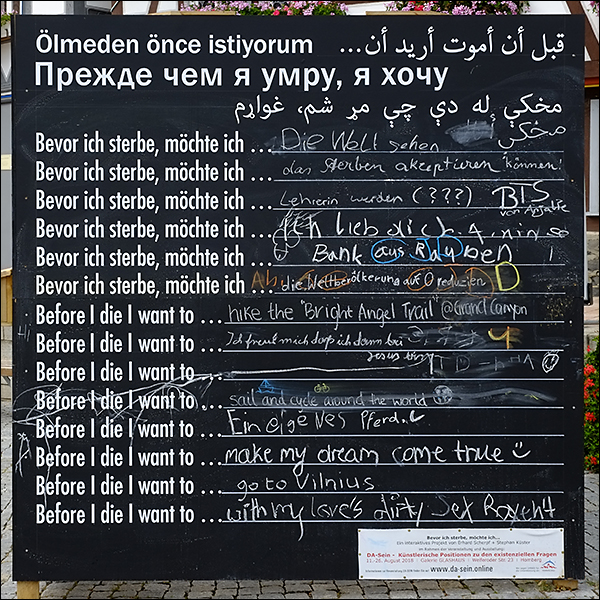 Ölmeden önce istiyorum قبل أن أموت أريد أن...
Прежде чем я умру, я хочу
مخکې له دې چې مړ شم، غواړم
Bevor ich sterbe, möchte ich ... Die Welt sehen
Bevor ich sterbe, möchte ich ... das Sterben akzeptieren können!
Bevor ich sterbe, möchte ich ... Lehrerin werden (???) BTS
Bevor ich sterbe, möchte ich ... lieb
Bevor ich sterbe, möchte ich ... Bank aus Rauben
Bevor ich sterbe, möchte ich ... die Weltbevölkerung auf 0 reduzieren
Before I die I want to ... hike the "Bright Angel Trail" @Grand Canyon
Before I die I want to ... Ich freue mich darf ich dann bei
Jesus
Before I die I want to ...
Before I die I want to ... sail and cycle around the world
Before I die I want to ... Ein eigenes Pferd.
Before I die I want to ... make my dream come true
Before I die I want to ... go to Vilnius
Before I die I want to ... with my love's dirty Sex
Bevor ich sterbe, möchte ich...
Ein interaktives Projekt von Erhard Scherpf + Stephan Küster
Im Rahmen der Veranstaltung und Ausstellung:
DA-Sein – Künstlerische Positionen zu den existenziellen Fragen
11.-26. August 2018 - Galerie GLASHAUS - Welferoder Str. 23 - Homberg
www.da-sein.online